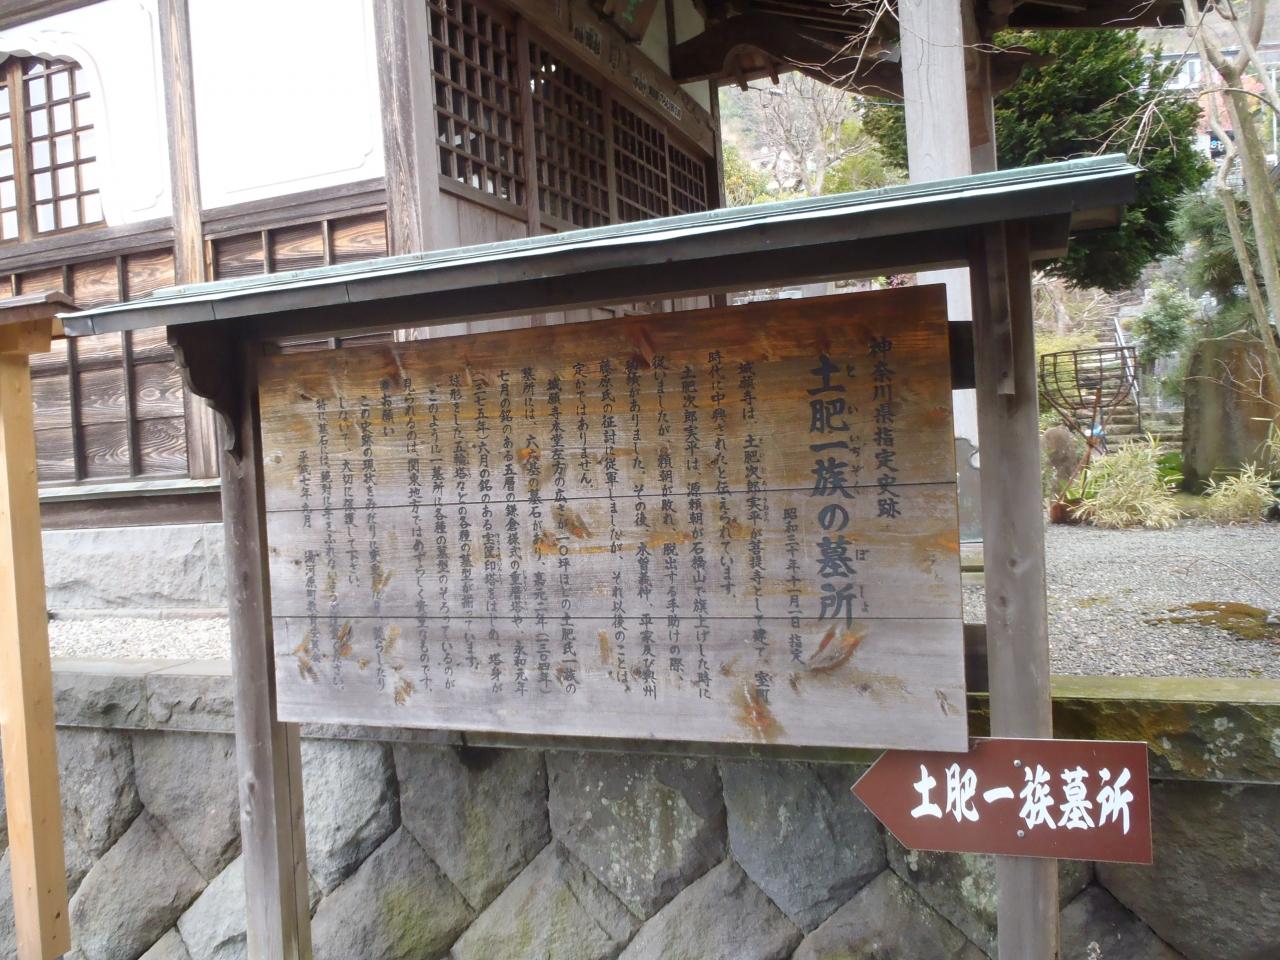 神奈川県指定史跡
土肥一族の墓所
と い いちぞく ぼ しょ
昭和三十年十一月一日指定
城願寺は、土肥次郎実平が菩提寺として建て、室町
時代に中興されたと伝えられています。
土肥次郎実平は、源頼朝が石橋山で旗上げした時に
従いましたが、頼朝が敗れ、脱出する手助けの際、
功績がありました。その後、木曽義仲、平家及び奥州
藤原氏の征討に従軍しましたが、それ以後のことは、
定かではありません。
城願寺本堂左方の広さが一〇坪ほどの土肥氏一族の
墓所には、六六基の墓石があり、嘉元二年(一三〇四年)
七月の銘のある五層の鎌倉様式の重層塔や、永和元年
(一三七五年)六月の銘のある宝篋印塔をはじめ、塔身が
球形をした五輪塔などの各種の墓型が揃っています。
このように一墓所に各種の墓型のそろっているのが
見られるのは、関東地方ではめずらしく貴重なものです。
お願い
この史跡の現状をみだりに変更したり、荒らしたり
しないで、大切に保護して下さい。
特に墓石には絶対に手をふれないよう
平成七年九月 湯河原町教育委員会
土肥一族墓所